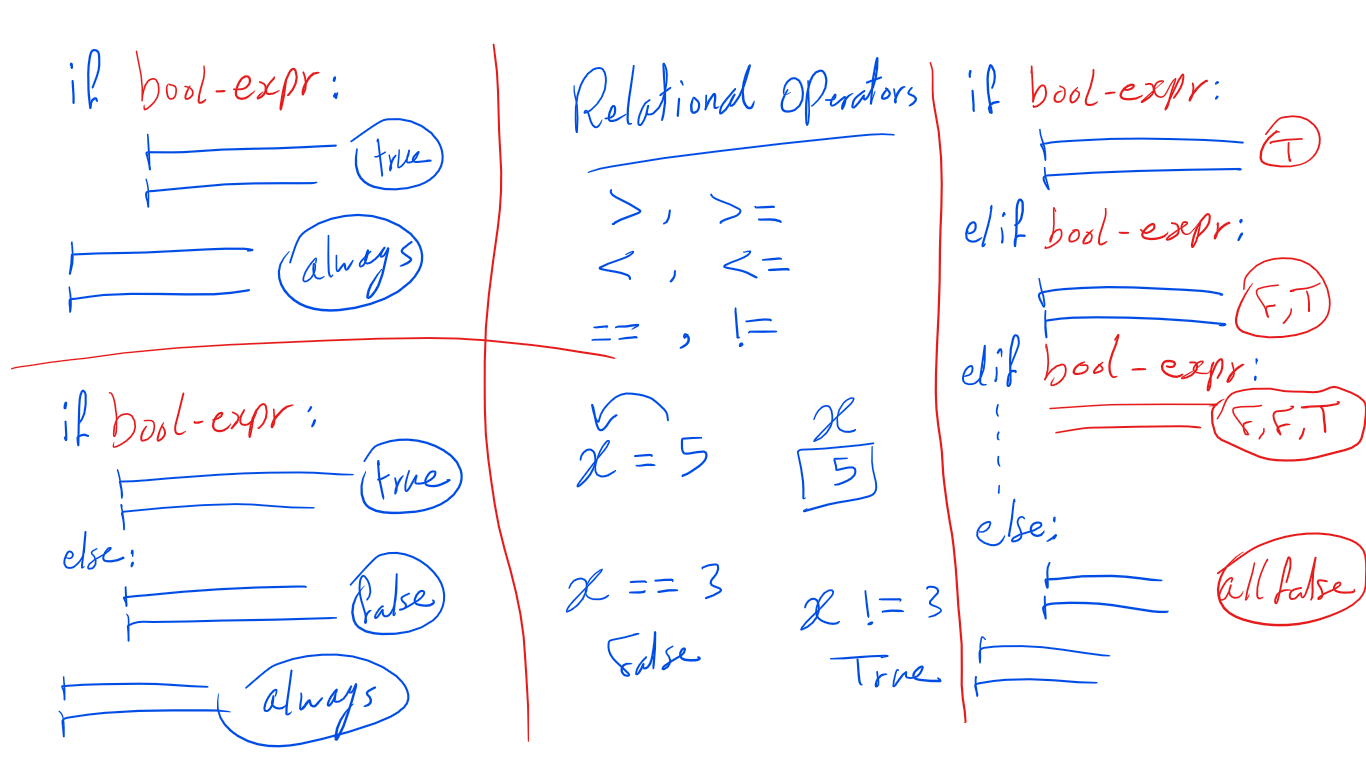 if bool-expr:
true
always
if bool-expr:
true
else:
false
always
Relational Operators
> , >=
< , <=
== , !=
x = 5
x
5
x == 3
False
x != 3
True
if bool-expr:
T
elif bool-expr:
F,T
elif bool-expr:
F,F,T
else:
all false